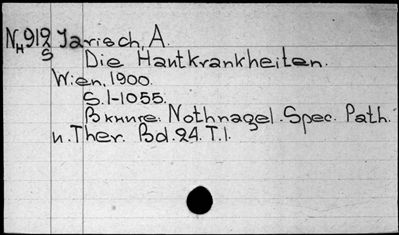 N_H 912/S Jarisch, A.
Die Hautkrankheiten.
Wien, 1900.
S. 1-1055.
В книге. Nothnagel. Spec. Path.
u. Ther. Bd. 24. T. 1.